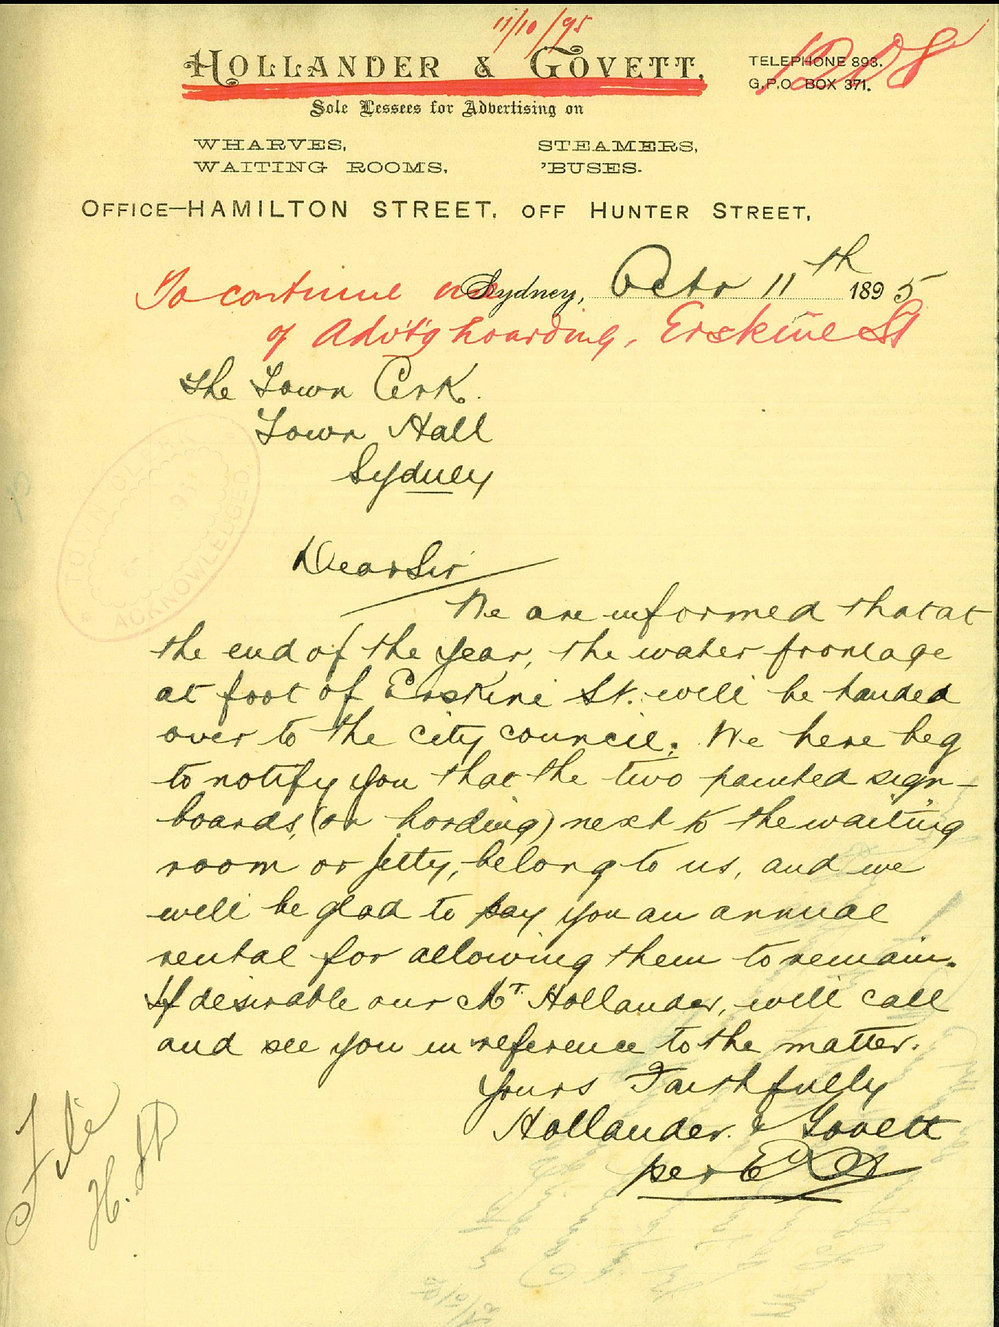 11/10/95
HOLLANDER & GOVETT.
TELEPHONE 893.
G.P.O. BOX 371.
1208
Sole Lessees for Advertising on
WHARVES, STEAMERS,
WAITING ROOMS, 'BUSES.
OFFICE—HAMILTON STREET, OFF HUNTER STREET,
Sydney, Octr 11th 1895
To continue use
of Advt'g hoarding, Erskine St
The Town Clerk.
Town Hall
Sydney
TOWN
ACKNOWLEDGED
Dear Sir
We are informed that at
the end of the year, the water frontage
at foot of Erskine St. will be handed
over to the city council. We here beg
to notify you that the two painted sign-
boards, (or hording) next to the waiting
room or jetty, belong to us, and we
will be glad to pay you an annual
rental for allowing them to remain.
If desirable our Mr. Hollander, will call
and see you in reference to the matter.
Yours Faithfully
Hollander & Govett
per
File